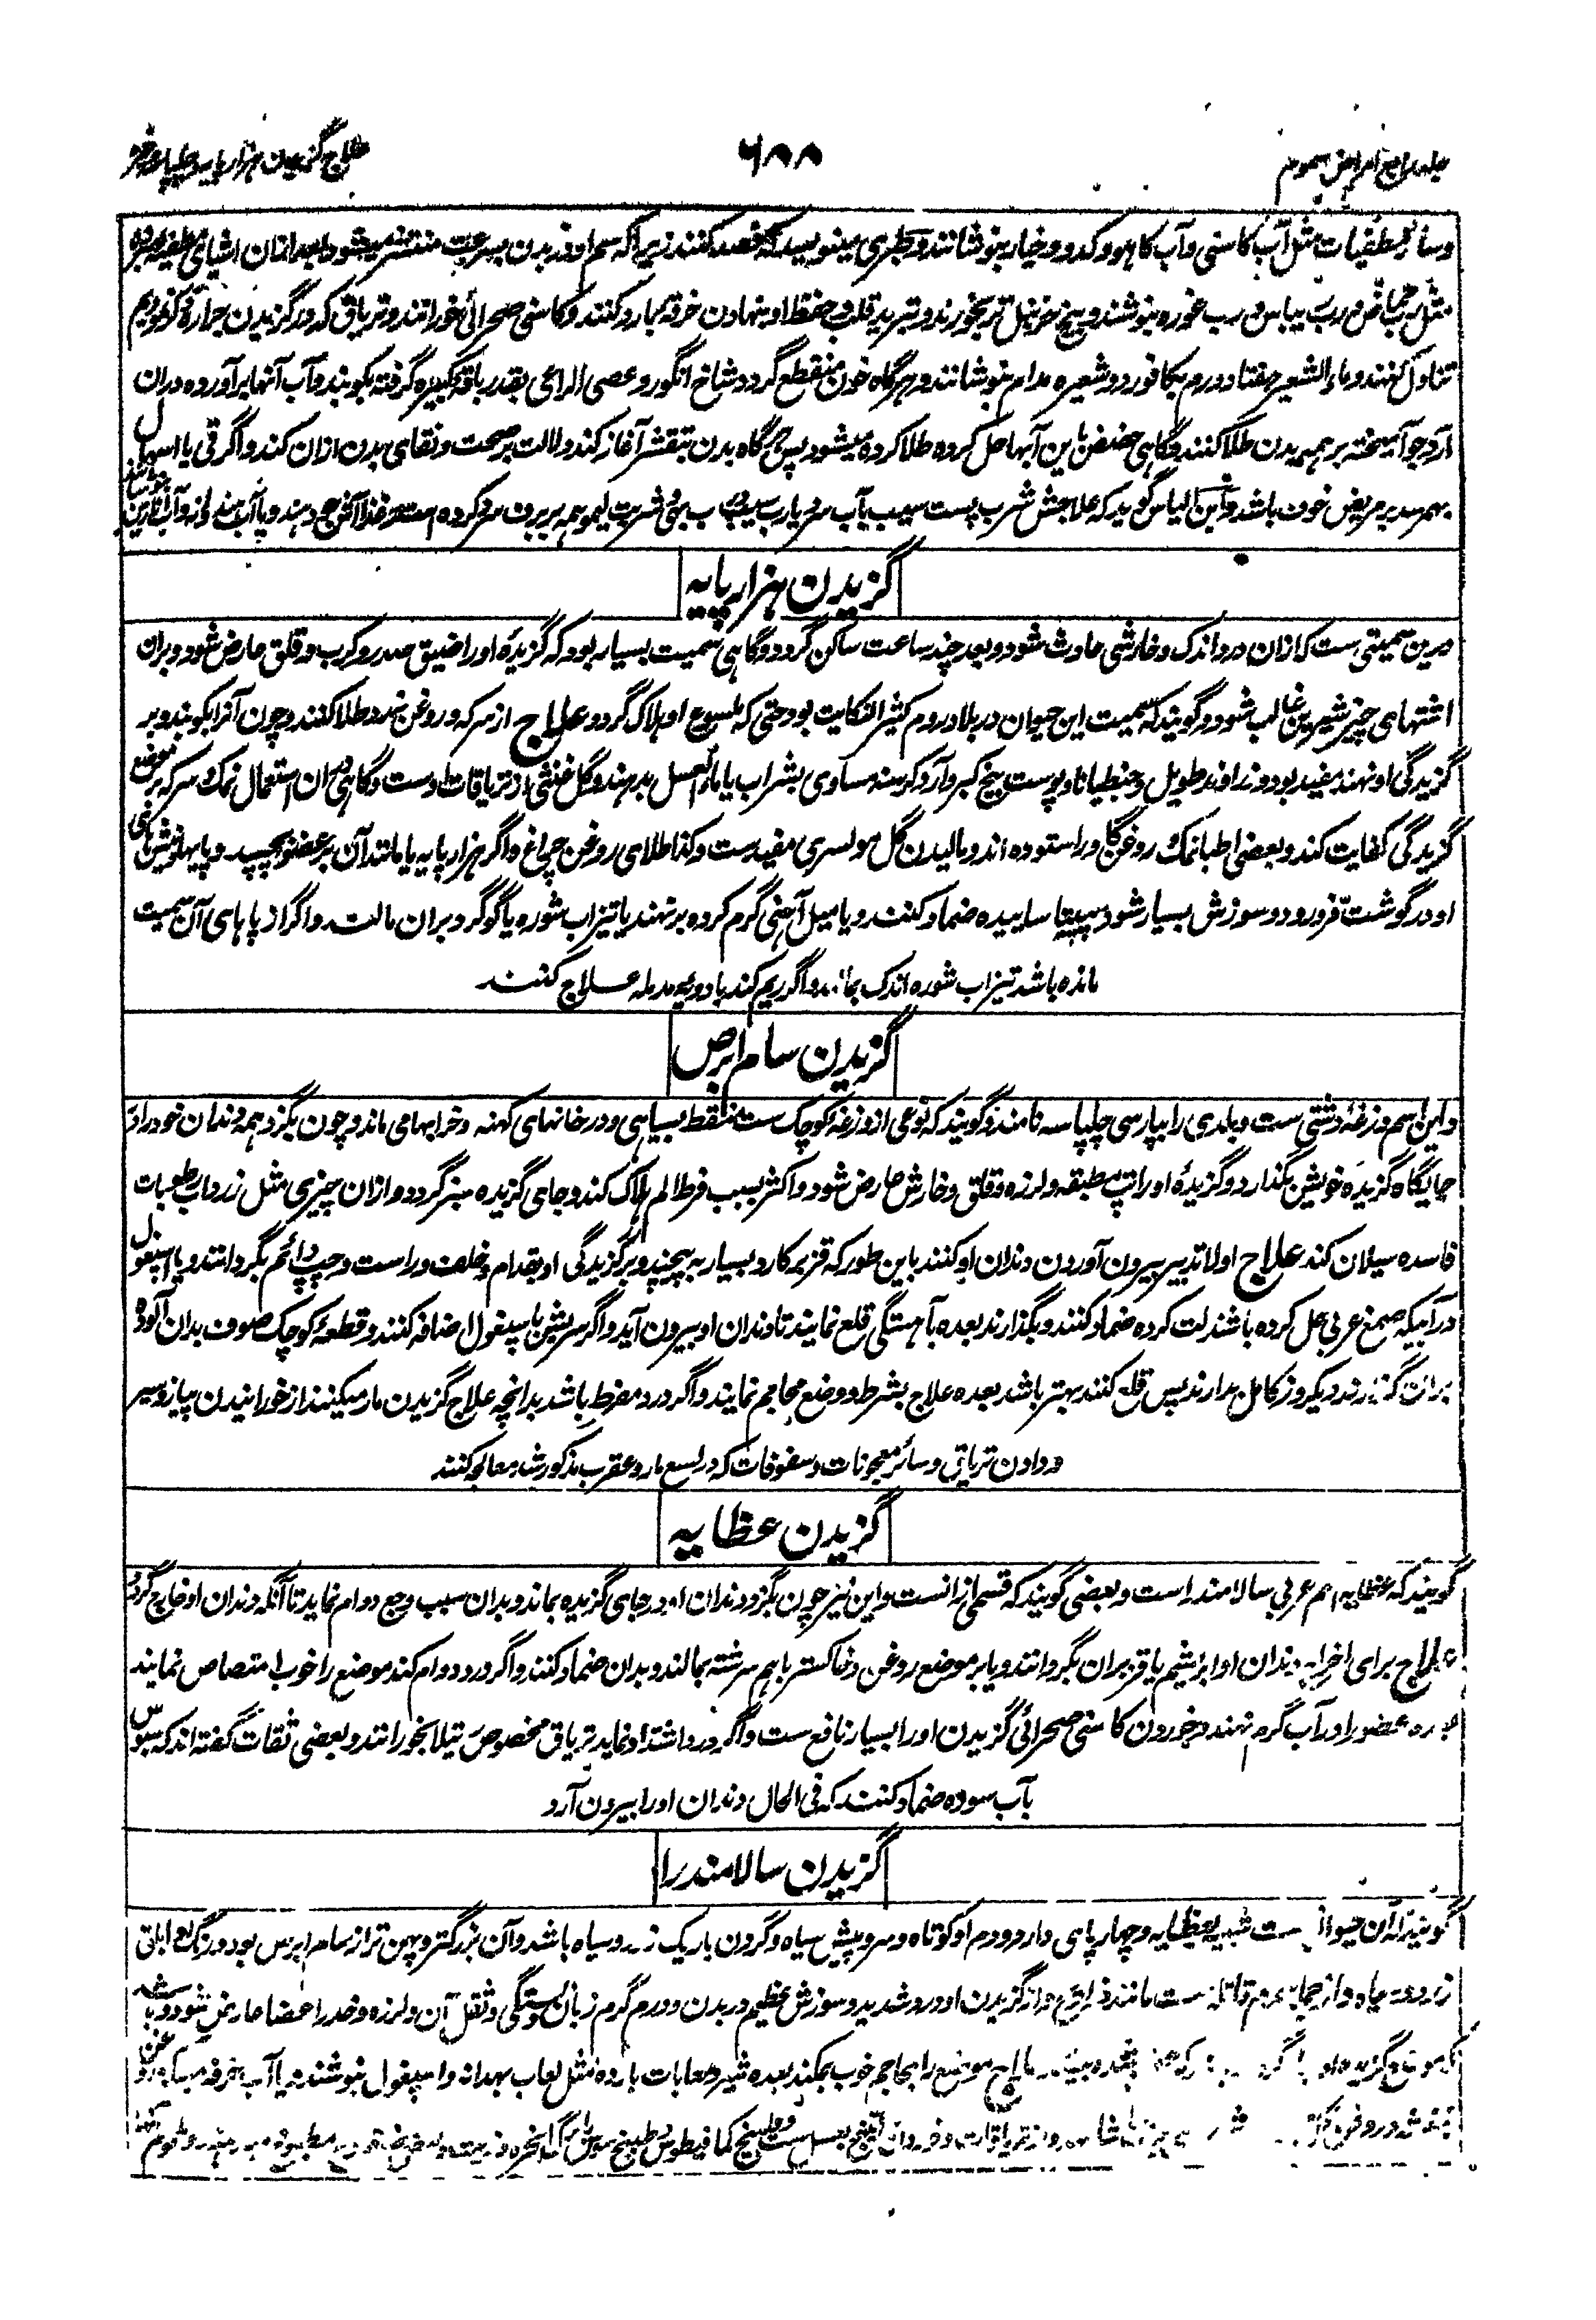 جلد رابع امراض سموم
۶۸۸
علاج گزیدن هزارپایه و چلپاسه وغیره
وسائر مطفیات مثل آب کاسنی و آب کاهو و کدو و خیار بنوشانند و طبری مینویسد که فصد کنند زیراکه سم او در بدن بسرعت منتشر میشود و بعد ازان اشیای مطفیه مبرده
مثل رب حماض و رب ریباس و رب غوره بنوشند و بیخ خربزه تر بخورند و تبرید قلب و حفظ او بنهادن خرقه بمبارد کنند و کاسنی صحرائی بخورانند و تریاق که در گزیدن جراره ذکر کردیم
تناول کنند و ماء الشعیر هفتاد درم بکافور دو شعیره مدام بنوشانند و هرگاه خون منقطع گردد شاخ انگور و عصی الراعی بقدر باقه کبیره گرفته بکوبند و آب آنها برآورده دران
آرد جو آمیخته بر همه بدن طلا کنند و گاهی حضض باین آبها حل کرده طلا کرده میشود پس هرگاه بدن بتقشر آغاز کند دلالت بر صحت و نقای بدن ازان کند و اگر قی یا اسهال
بهمرسد بر مریض خوف باشد و ابن الیاس گوید که علاجش شرب پست سیب بآب سرد یا رب سیب و شربت لیمو همه ببرف سرد کرده است و غذا آش جو دهند و بآب هندوانه و آب انارین
گزیدن هزارپایه
درین سمیتی ست که ازان درد اندک و خارشی حادث شود و بعد چند ساعت ساکن گردد و گاهی سمیت بسیار بود که گزیدهٔ او را ضیق صدر و کرب و قلق عارض شود و بران
اشتهای چیز شیرین غالب شود و گویند که سمیت این حیوان در بلاد روم کثیر النکایت بود حتی که ملسوع او هلاک گردد علاج از سرکه و روغن زرد طلا کنند و چون آنرا بکوبند و بر
گزیدگی او نهند مفید بود و زراوند طویل و جنطیانا و پوست بیخ کبر و آرد کرسنه مساوی بشراب یا ماء العسل بدهند و گل خنثی از تریاقات اوست و گاهی دران استعمال نمک و سرکه بر موضع
گزیدگی کفایت کند و بعضی اطبا نمک و روغن گاو را ستوده اند و مالیدن گل مولسری مفید ست و کذا طلای روغن چراغ و اگر هزارپایه یا مانند آن بر عضو بچسپد و پایها و نیش های
او در گوشت فرو رود و سوزش بسیار شود پپیتا ساییده ضماد کنند و یا میل آهنی گرم کرده بر نهند یا تیزاب شوره یا گوگرد بران مالند و اگر از پاهای آن سمیت
مانده باشد تیزاب شوره اندک بمالند و اگر ریم کند بادویه مدمله علاج کنند
گزیدن سام ابرص
و این اسم وزغهٔ دشتی ست و بلدی را بپارسی چلپاسه نامند و گویند که نوعی از وزغهٔ کوچک ست منقط بسیاهی و در خانهای کهنه و خرابها می ماند و چون بگزد همه دندان خود را در
جایگاه گزیده خویش بگذارد و گزیدهٔ او را تپ مطبقه و لرزه و قلق و خارش عارض شود و اکثر بسبب فرط الم هلاک کند و جای گزیده سبز گردد و ازان چیزی مثل زرداب رطوبات
فاسده سیلان کند علاج اولا تدبیر بیرون آوردن دندان او کنند باین طور که قز بر کارد بسیار به پیچند و بر گزیدگی او بقدام و خلف و راست و چپ دائم بگردانند و یا اسپغول
در آبیکه صمغ عربی حل کرده باشند لت کرده ضماد کنند و بگذارند بعده بآهستگی قلع نمایند تا دندان او بیرون آید و اگر سریش با سپغول اضافه کنند و قطعهٔ کوچک صوف بدان آلوده
بران گذارند و یکروز کامل بدارند پس قلع کنند بهتر باشد بعده علاج بشرط و وضع محاجم نمایند و اگر درد مفرط باشد بدانچه علاج گزیدن مار میکنند از خورانیدن پیاز و سیر
و دادن تریاق و سائر معجونات و سفوفات که در لسع مار و عقرب مذکور شد معالجه کنند
گزیدن عظایه
گویند که عظایه اسم عربی سالامندرا ست و بعضی گویند که قسمی ازانست و این نیز چون بگزد دندان او در جای گزیده بماند و بدان سبب وجع دوام نماید تا آنکه دندان او خارج گردد
علاج برای اخراج دندان او ابریشم یا قز بران بگردانند و یا بر موضع روغن و خاکستر باهم سرشته بمالند و بدان ضماد کنند و اگر درد دوام کند موضع را خوب امتصاص نمایند
بعده عضو را در آب گرم نهند و خوردن کاسنی صحرائی گزیدن او را بسیار نافع ست و اگر درد اشتداد نماید تریاق مخصوص رتیلا بخورانند و بعضی ثقات گفته اند که سبوس
بآب سوده ضماد کنند که فی الحال دندان او را بیرون آرد
گزیدن سالامندرا
گویند آن حیوانی ست شبیه بعظایه و چهار پای دارد و دم او کوتاه و سر و پیش سیاه و گردن باریک زرد و سیاه باشد و آن بزرگتر و پهن تر از سام ابرص بود و رنگ او ابلق
زرد و سیاه و از جمله سموم قاتله ست مانند ذراریح و از گزیدن او درد شدید و سوزش عظیم در بدن و ورم گرم زبان و بستگی و ثقل آن و لرزه و خدر اعضا عارض شود و باشد
که موضع گزیده او علاج موضع را بمحاجم خوب بمکند بعده شیر و لعابات بارده مثل لعاب بهدانه و اسپغول بنوشند و یا آب خرفه
و از تریاقات و طبیخ کمافیطوس و طبیخ سوسن